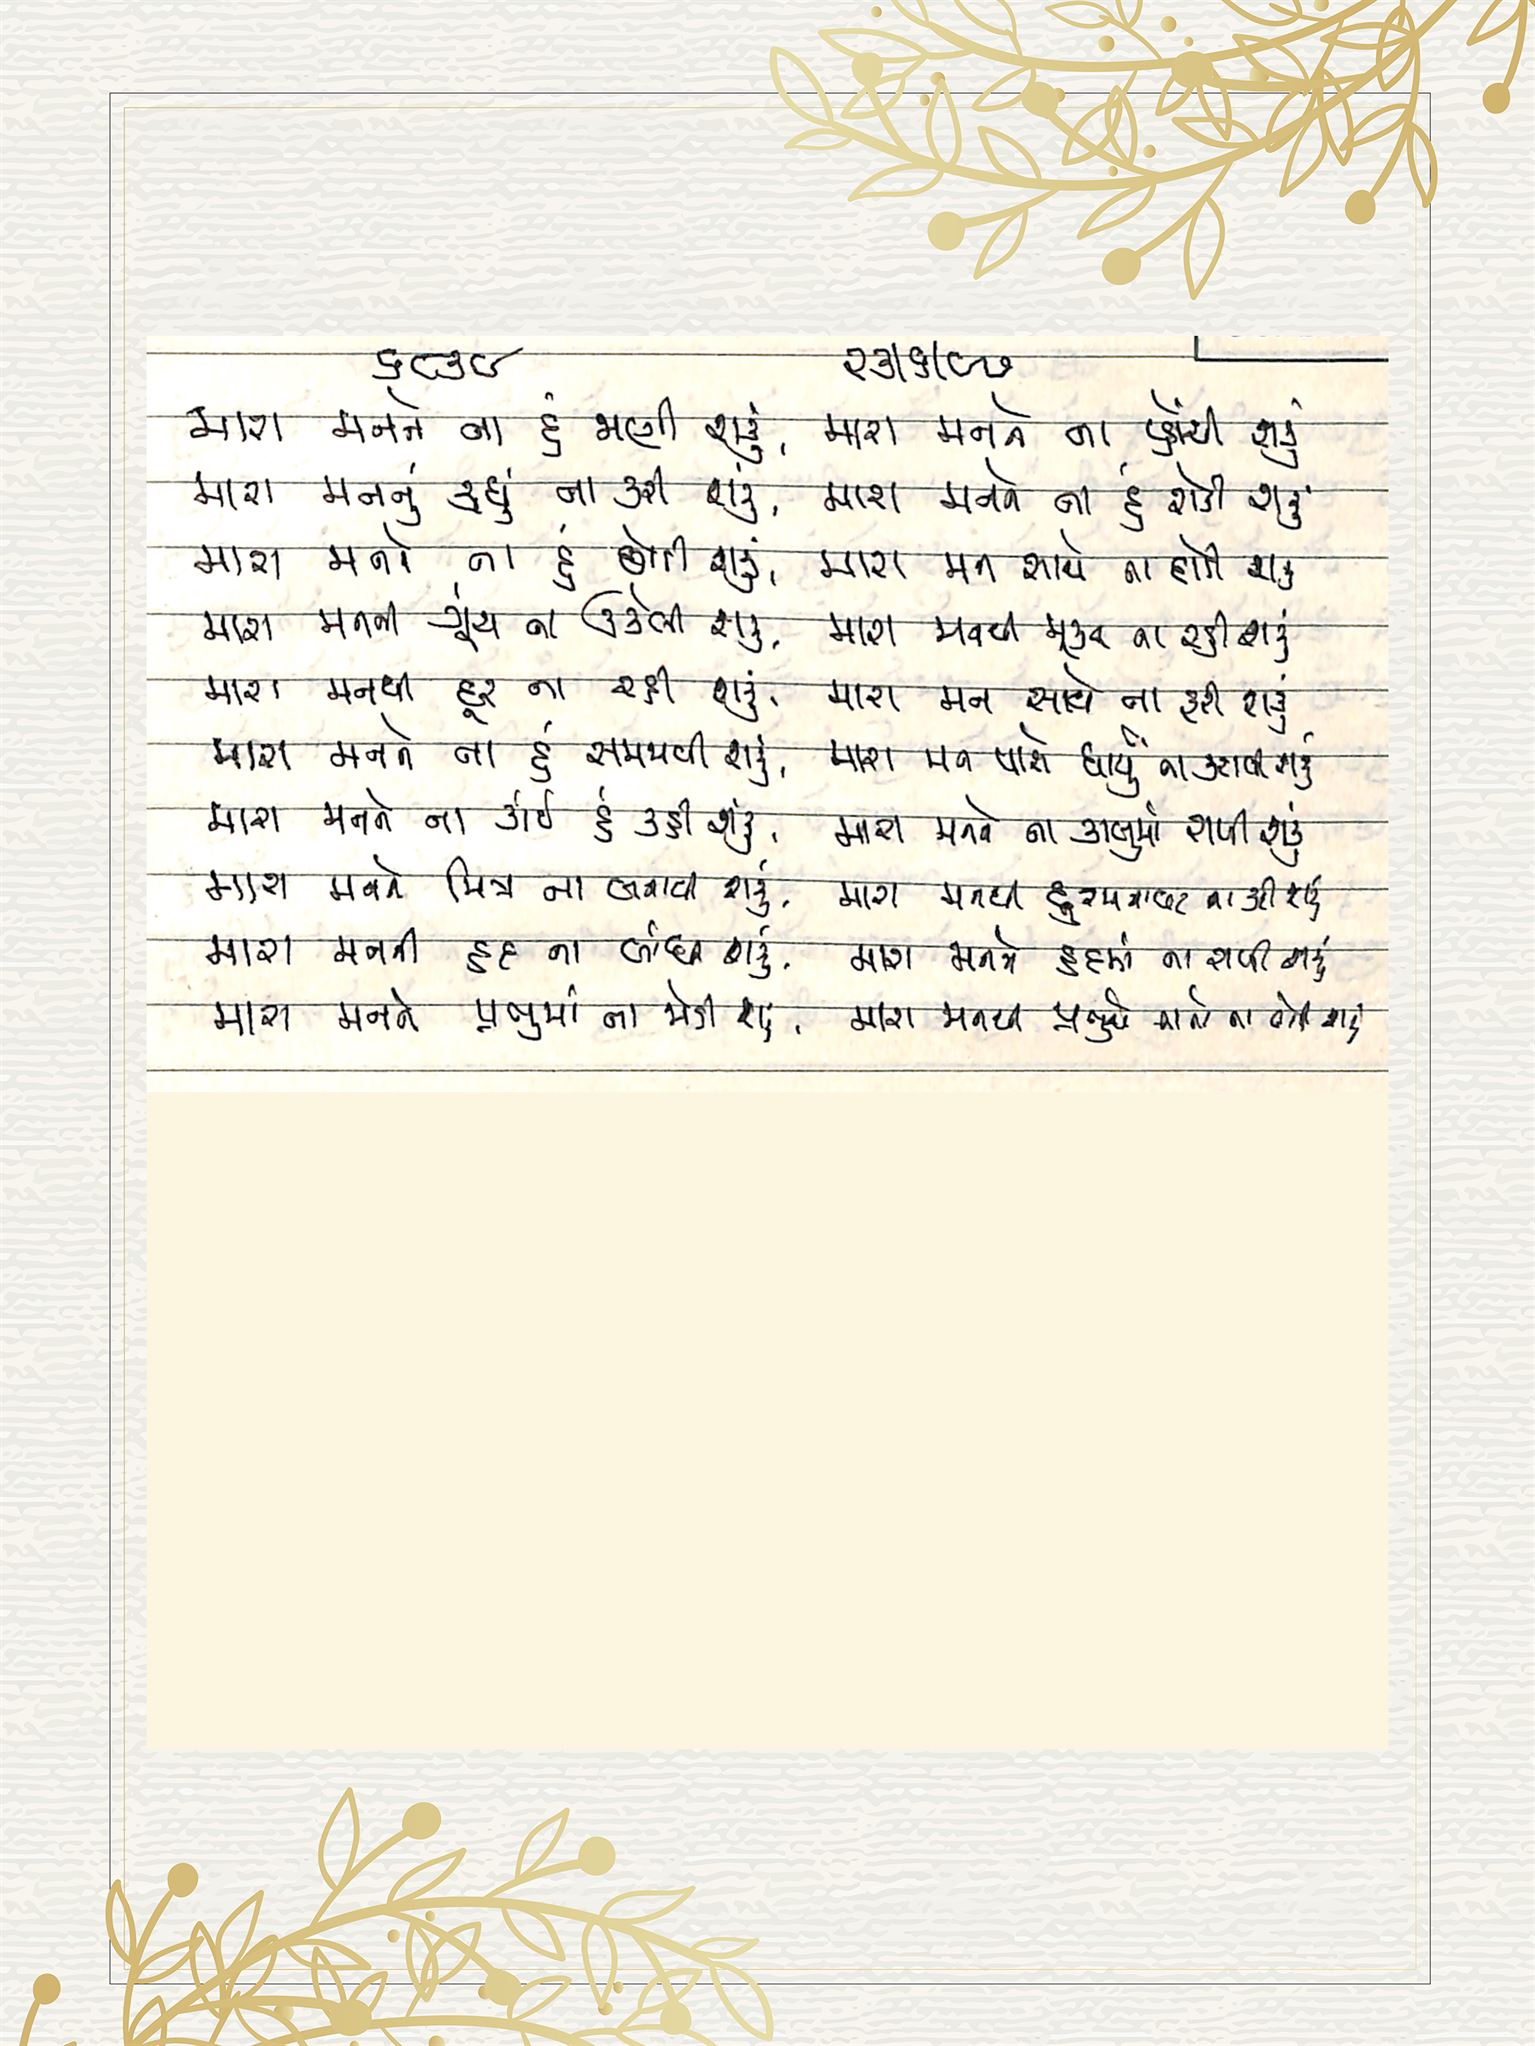 મારા મનને ના હું જાણી શકું, મારા મનને ના પ્હોંચી શકું
મારા મનનું કીધું ના કરી શકું, મારા મનને ના હું રોકી શકું
મારા મનને ના હું છોડી શકું, મારા મન સાથે ના શકું
મારા મનની ગૂંચ ના ઉકેલી શકું, મારા મનથી મૂક્ત ના રહી શકું
મારા મનથી દૂર ના રહી શકું, મારા મન સાથે ના ફરી શકું
મારા મનને ના હું સમજાવી શકું, મારા મન પાસે ધાર્યું ના કરાવી શકું
મારા મનને ના કાંઈ હું કહી શકું, મારા મનને ના કાબુમાં રાખી શકું
મારા મનને મિત્ર ના બનાવી શકું, મારા મનથી દુશ્મનાવટ ના કરી શકું
મારા મનની હદ ના બાંધી શકું, મારા મનને હદમાં ના રાખી શકું
મારા મનને પ્રભુમાં ના જોડી શકું, મારા મનથી પ્રભુને ના શકું